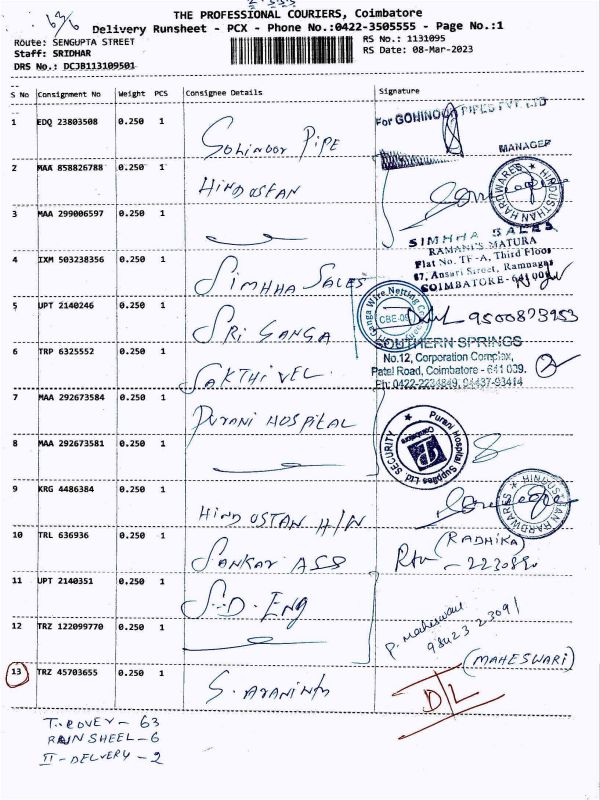 63/6
THE PROFESSIONAL COURIERS, Coimbatore
Delivery Runsheet - PCX - Phone No.:0422-3505555 - Page No.:1
Route: SENGUPTA STREET
RS No.: 1131095
Staff: SRIDHAR
RS Date: 08-Mar-2023
DRS No.: DCJB113109501
S No Consignment No Weight PCS Consignee Details Signature
1 EDQ 23803508 0.250 1 Gohinoor PIPE
For GOHINOOR PIPES PVT LTD
MANAGER
2 MAA 858826788 0.250 1 HINDUSTAN
HINDUSTHAN HARDWARES
3 MAA 299006597 0.250 1
4 IXM 503238356 0.250 1 SIMHHA SALES
SIMHHA SALES
RAMANI'S MATURA
Flat No. TF-A, Third Floor
67, Ansari Street, Ramnagar
COIMBATORE - 641 009
5 UPT 2140246 0.250 1 SRI GANGA
Ganga Wire Netting Co
CBE-09
9500873953
6 TRP 6325552 0.250 1 SAKTHIVEL
SOUTHERN SPRINGS
No.12, Corporation Complex,
Patel Road, Coimbatore - 641 009.
Ph: 0422-2234849, 94437-93414
7 MAA 292673584 0.250 1 PURANI HOSPITAL
Purani Hospital Supplies Ltd. SECURITY
Coimbatore
8 MAA 292673581 0.250 1
9 KRG 4486384 0.250 1 HINDUSTAN H/W
HINDUSTHAN HARDWARES
10 TRL 636936 0.250 1 SANKAR ASS
(RADHIKA)
11 UPT 2140351 0.250 1 S.D. Eng
12 TRZ 122099770 0.250 1
P. Maheswari
98423 23091
(MAHESWARI)
13 TRZ 45703655 0.250 1
D/L
T. COVER - 63
RUN SHEEL - 6
II - DELVERY - 2